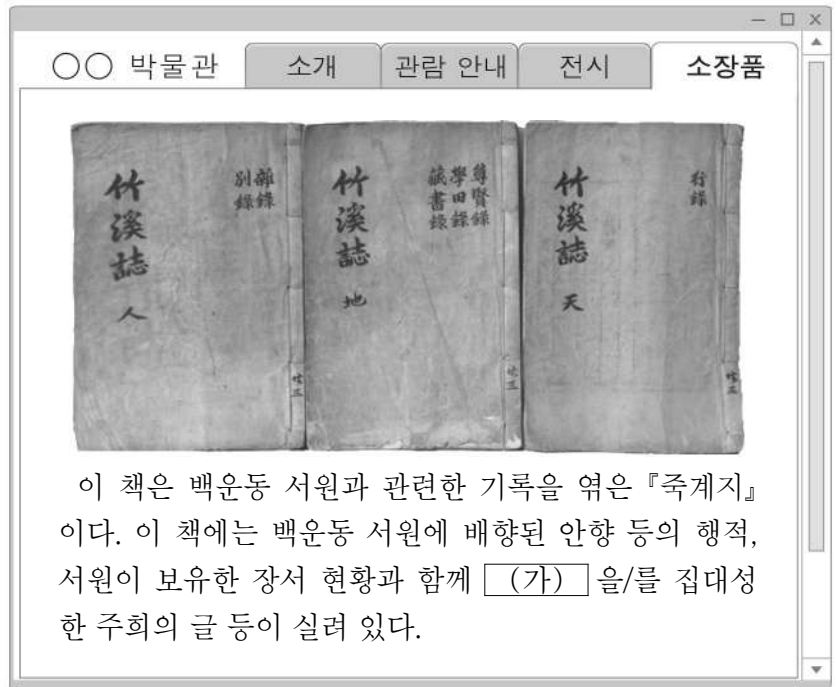 ○○ 박물관
소개
관람 안내
전시
소장품
竹溪誌 人
雜錄
別錄
竹溪誌 地
尊賢錄
學田錄
藏書錄
竹溪誌 天
行錄
共三
共三
이 책은 백운동 서원과 관련한 기록을 엮은 『죽계지』
이다. 이 책에는 백운동 서원에 배향된 안향 등의 행적,
서원이 보유한 장서 현황과 함께 (가) 을/를 집대성
한 주희의 글 등이 실려 있다.